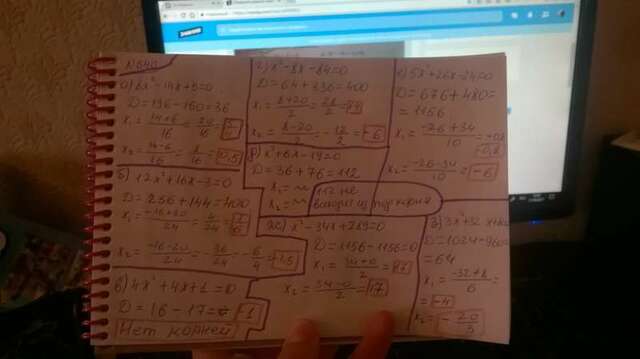 а) 8x²-14x+5=0
D=196-160=36
x₁= 14+6/16 = 20/16 = 5/4
x₂= 14-6/16 = 8/16 = 0,5
б) 12x²+16x-3=0
D=256+144=400
x₁= -16+20/24 = 4/24 = 1/6
x₂= -16-20/24 = -36/24 = -6/4 = -1,5
в) 4x²+4x+1=0
D=16-17= -1
Нет корней
г) x²-8x-84=0
D=64+336=400
x₁= 8+20/2 = 28/2 =
x₂= 8-20/2 = -12/2 = -6
x²+6x-19=0
D=36+76=112
x₁=~
x₂=~
112 не
выходит из под корня
ж) x²-34x+289=0
D=1156-1156=0
x₁= 34+0/2 = 17
x₂= 34-0/2 = 17
5x²+26x-24=0
D=676+480=
=1156
x₁= -26+34/10 =
x₂= -26-34/10 = -6
з) 3x²+32x+80=0
D=1024-960=
=64
x₁= -32+8/6 =
= -4
x₂= -20/3